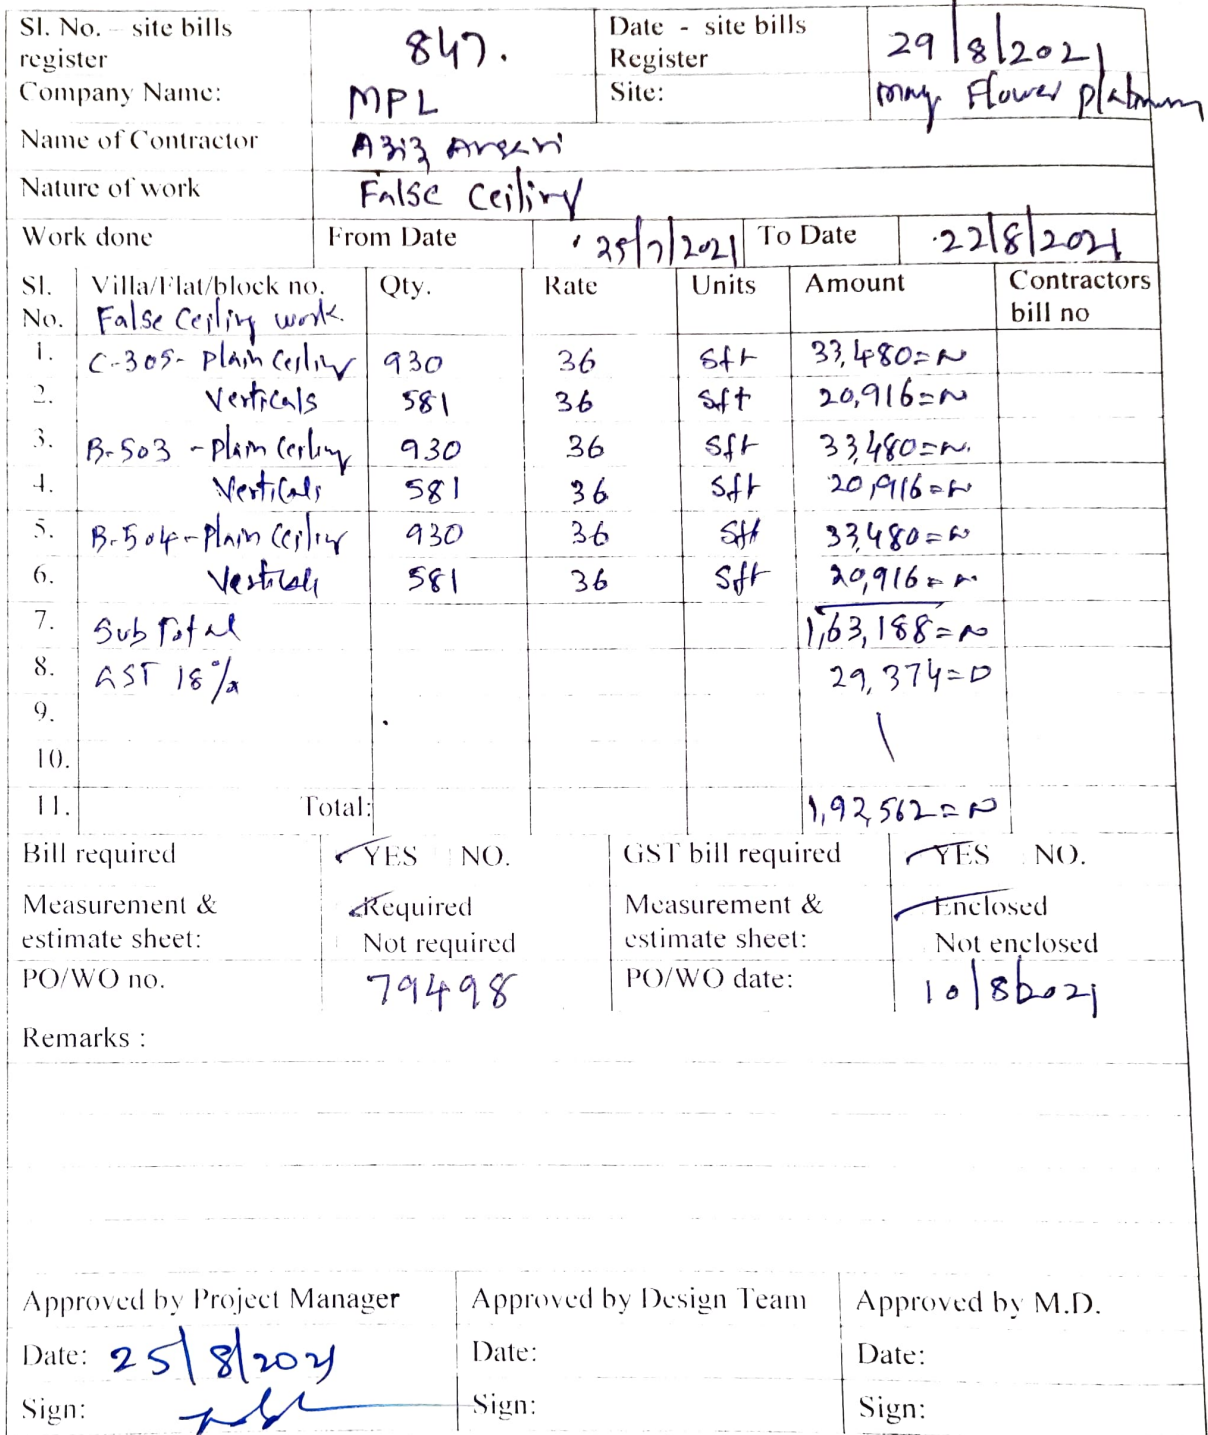 Sl. No. – site bills register 847. Date - site bills Register 29/8/2021
Company Name: MPL Site: may Flower platinum
Name of Contractor Aziz Ansari
Nature of work False Ceiling
Work done From Date 25/7/2021 To Date 22/8/2021
Sl. No. Villa/Flat/block no. Qty. Rate Units Amount Contractors bill no
False Ceiling work.
1. C-305- Plain Ceiling 930 36 Sft 33,480=00
2. Verticals 581 36 Sft 20,916=00
3. B-503 - Plain Ceiling 930 36 Sft 33,480=00.
4. Verticals 581 36 Sft 20,916=00
5. B-504-Plain Ceiling 930 36 Sft 33,480=00
6. Verticals 581 36 Sft 20,916=00
7. Sub Total 1,63,188=00
8. GST 18% 29,374=0
9.
10.
11. Total: 1,92,562=00
Bill required YES NO. GST bill required YES NO.
Measurement & estimate sheet: Required Not required Measurement & estimate sheet: Enclosed Not enclosed
PO/WO no. 79498 PO/WO date: 10/8/2021
Remarks :
Approved by Project Manager Approved by Design Team Approved by M.D.
Date: 25/8/2021 Date: Date:
Sign: Sign: Sign: